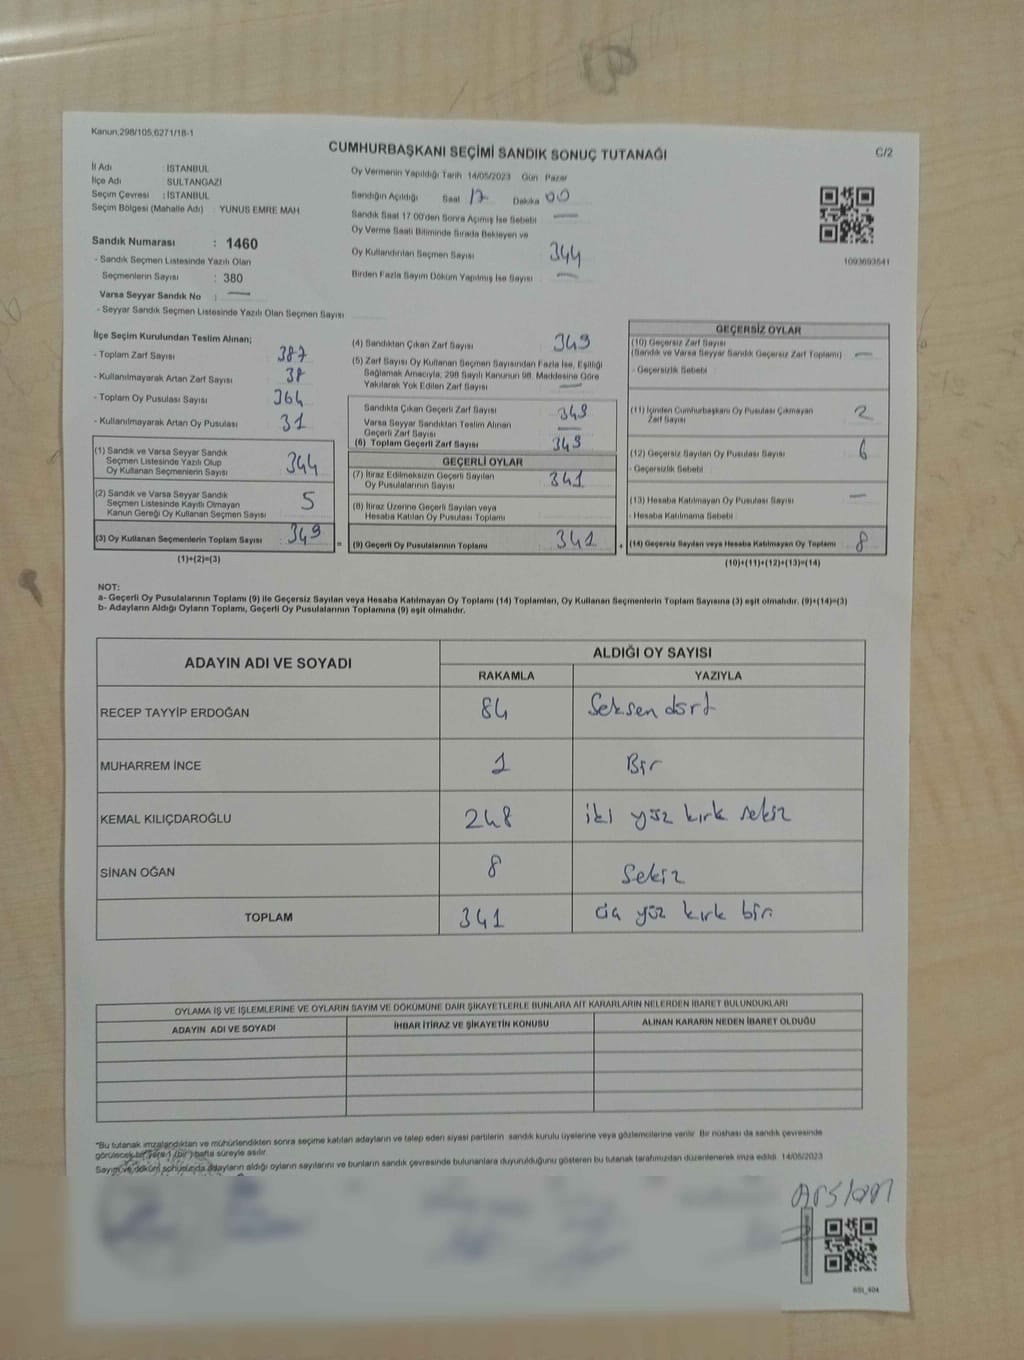 Kanun;298/105,6271/18-1
CUMHURBAŞKANI SEÇİMİ SANDIK SONUÇ TUTANAĞI
C/2
İl Adı : İSTANBUL
İlçe Adı : SULTANGAZİ
Seçim Çevresi : İSTANBUL
Seçim Bölgesi (Mahalle Adı) : YUNUS EMRE MAH
Sandık Numarası : 1460
- Sandık Seçmen Listesinde Yazılı Olan
Seçmenlerin Sayısı : 380
Varsa Seyyar Sandık No : —
- Seyyar Sandık Seçmen Listesinde Yazılı Olan Seçmen Sayısı
Oy Vermenin Yapıldığı Tarih 14/05/2023 Gün Pazar
Sandığın Açıldığı Saat 17 Dakika 00
Sandık Saat 17 00'den Sonra Açımış İse Sebebi —
Oy Verme Saati Bitiminde Sırada Bekleyen ve
Oy Kullandırılan Seçmen Sayısı 344
Birden Fazla Sayım Döküm Yapılmış İse Sayısı —
1093693641
İlçe Seçim Kurulundan Teslim Alınan;
- Toplam Zarf Sayısı 387
- Kullanılmayarak Artan Zarf Sayısı 38
- Toplam Oy Pusulası Sayısı 364
- Kullanılmayarak Artan Oy Pusulası 31
(1) Sandık ve Varsa Seyyar Sandık
Seçmen Listesinde Yazılı Olup
Oy Kullanan Seçmenlerin Sayısı 344
(2) Sandık ve Varsa Seyyar Sandık
Seçmen Listesinde Kayıtlı Olmayan
Kanun Gereği Oy Kullanan Seçmen Sayısı 5
(3) Oy Kullanan Seçmenlerin Toplam Sayısı 349
(1)+(2)=(3)
(4) Sandıktan Çıkan Zarf Sayısı 349
(5) Zarf Sayısı Oy Kullanan Seçmen Sayısından Fazla İse, Eşitliği
Sağlamak Amacıyla, 298 Sayılı Kanunun 98. Maddesine Göre
Yakılarak Yok Edilen Zarf Sayısı —
Sandıkta Çıkan Geçerli Zarf Sayısı 349
Varsa Seyyar Sandıktan Teslim Alınan
Geçerli Zarf Sayısı —
(6) Toplam Geçerli Zarf Sayısı 349
GEÇERLİ OYLAR
(7) İtiraz Edilmeksizin Geçerli Sayılan
Oy Pusulalarının Sayısı 341
(8) İtiraz Üzerine Geçerli Sayılan veya
Hesaba Katılan Oy Pusulası Toplamı
= (9) Geçerli Oy Pusulalarının Toplamı 341 +
GEÇERSİZ OYLAR
(10) Geçersiz Zarf Sayısı
(Sandık ve Varsa Seyyar Sandık Geçersiz Zarf Toplamı) —
- Geçersizlik Sebebi
(11) İçinden Cumhurbaşkanı Oy Pusulası Çıkmayan
Zarf Sayısı 2
(12) Geçersiz Sayılan Oy Pusulası Sayısı 6
- Geçersizlik Sebebi
(13) Hesaba Katılmayan Oy Pusulası Sayısı —
- Hesaba Katılmama Sebebi
(14) Geçersiz Sayılan veya Hesaba Katılmayan Oy Toplamı 8
(10)+(11)+(12)+(13)=(14)
NOT:
a- Geçerli Oy Pusulalarının Toplamı (9) ile Geçersiz Sayılan veya Hesaba Katılmayan Oy Toplamı (14) Toplamları, Oy Kullanan Seçmenlerin Toplam Sayısına (3) eşit olmalıdır. (9)+(14)=(3)
b- Adayların Aldığı Oyların Toplamı, Geçerli Oy Pusulalarının Toplamına (9) eşit olmalıdır.
ADAYIN ADI VE SOYADI
ALDIĞI OY SAYISI
RAKAMLA YAZIYLA
RECEP TAYYİP ERDOĞAN 84 Seksen dört
MUHARREM İNCE 1 Bir
KEMAL KILIÇDAROĞLU 248 iki yüz kırk sekiz
SİNAN OĞAN 8 Sekiz
TOPLAM 341 yüz kırk bir
OYLAMA İŞ VE İŞLEMLERİNE VE OYLARIN SAYIM VE DÖKÜMÜNE DAİR ŞİKAYETLERLE BUNLARA AİT KARARLARIN NELERDEN İBARET BULUNDUKLARI
ADAYIN ADI VE SOYADI İHBAR İTİRAZ VE ŞİKAYETİN KONUSU ALINAN KARARIN NEDEN İBARET OLDUĞU
"Bu tutanak imzalandıktan ve mühürlendikten sonra seçime katılan adayların ve talep eden siyasi partilerin sandık kurulu üyelerine veya gözlemcilerine verilir. Bir nüshası da sandık çevresinde
görülecek bir yere 1 (bir) hafta süreyle asılır.
Sayım ve döküm sonucunda adayların aldığı oyların sayılarını ve bunların sandık çevresinde bulunanlara duyurulduğunu gösteren bu tutanak tarafımızdan düzenlenerek imza edildi. 14/05/2023
Arslan